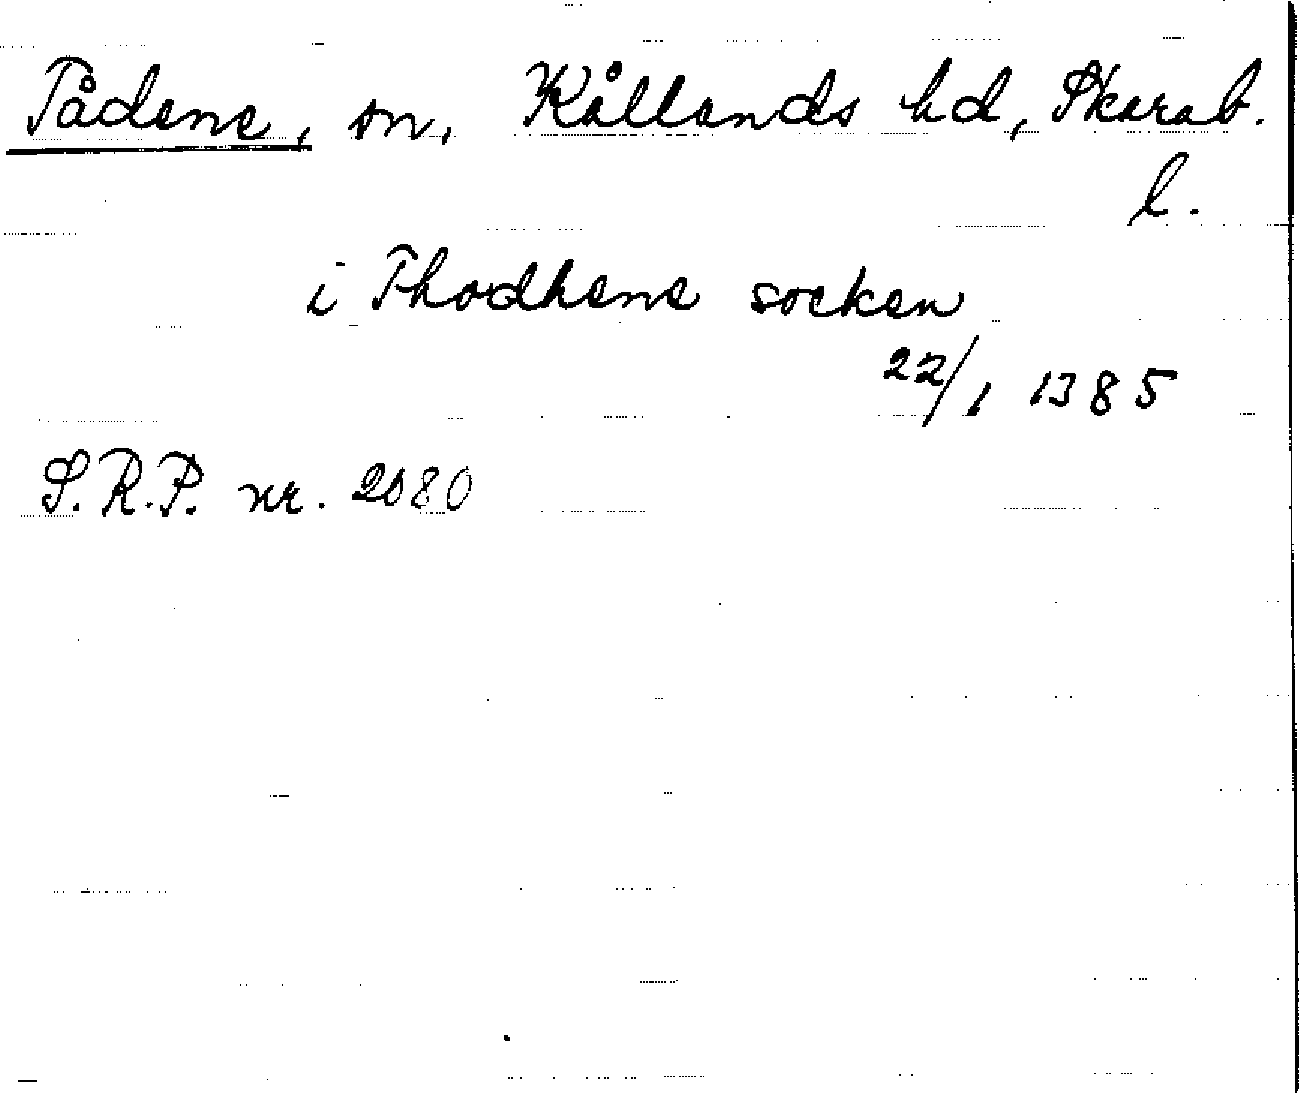 Tådene, sn, Kållands hd, Skarab.
l.
i Thodhene socken
22/1 1385
S.R.P. nr. 2080